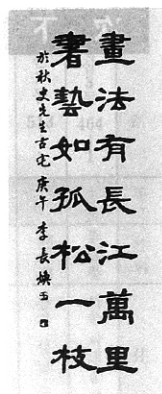 畫法有長江萬里
書藝如孤松一枝
於秋史先生古宅 庚午 李長煥